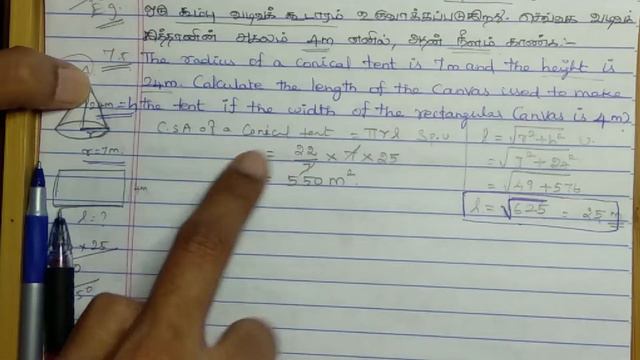 Eg.
ஒரு கூம்பு வடிவக் கூடாரம் உருவாக்கப்படுகிறது. செவ்வக வடிவ
கித்தானின் அகலம் 4m எனில், அதன் நீளம் காண்க:-
7.5 The radius of a conical tent is 7m and the height is
24m. Calculate the length of the Canvas used to make
24m = h the tent if the width of the rectangular Canvas is 4m?
C.S.A of a Conical tent = πrl Sq.u
l = √r²+h² u.
r = 7m
= 22/7 × 7 × 25
= √7²+24²
= 550 m².
= √49+576
4m
l = √625 = 25 m
l = ?
× 25